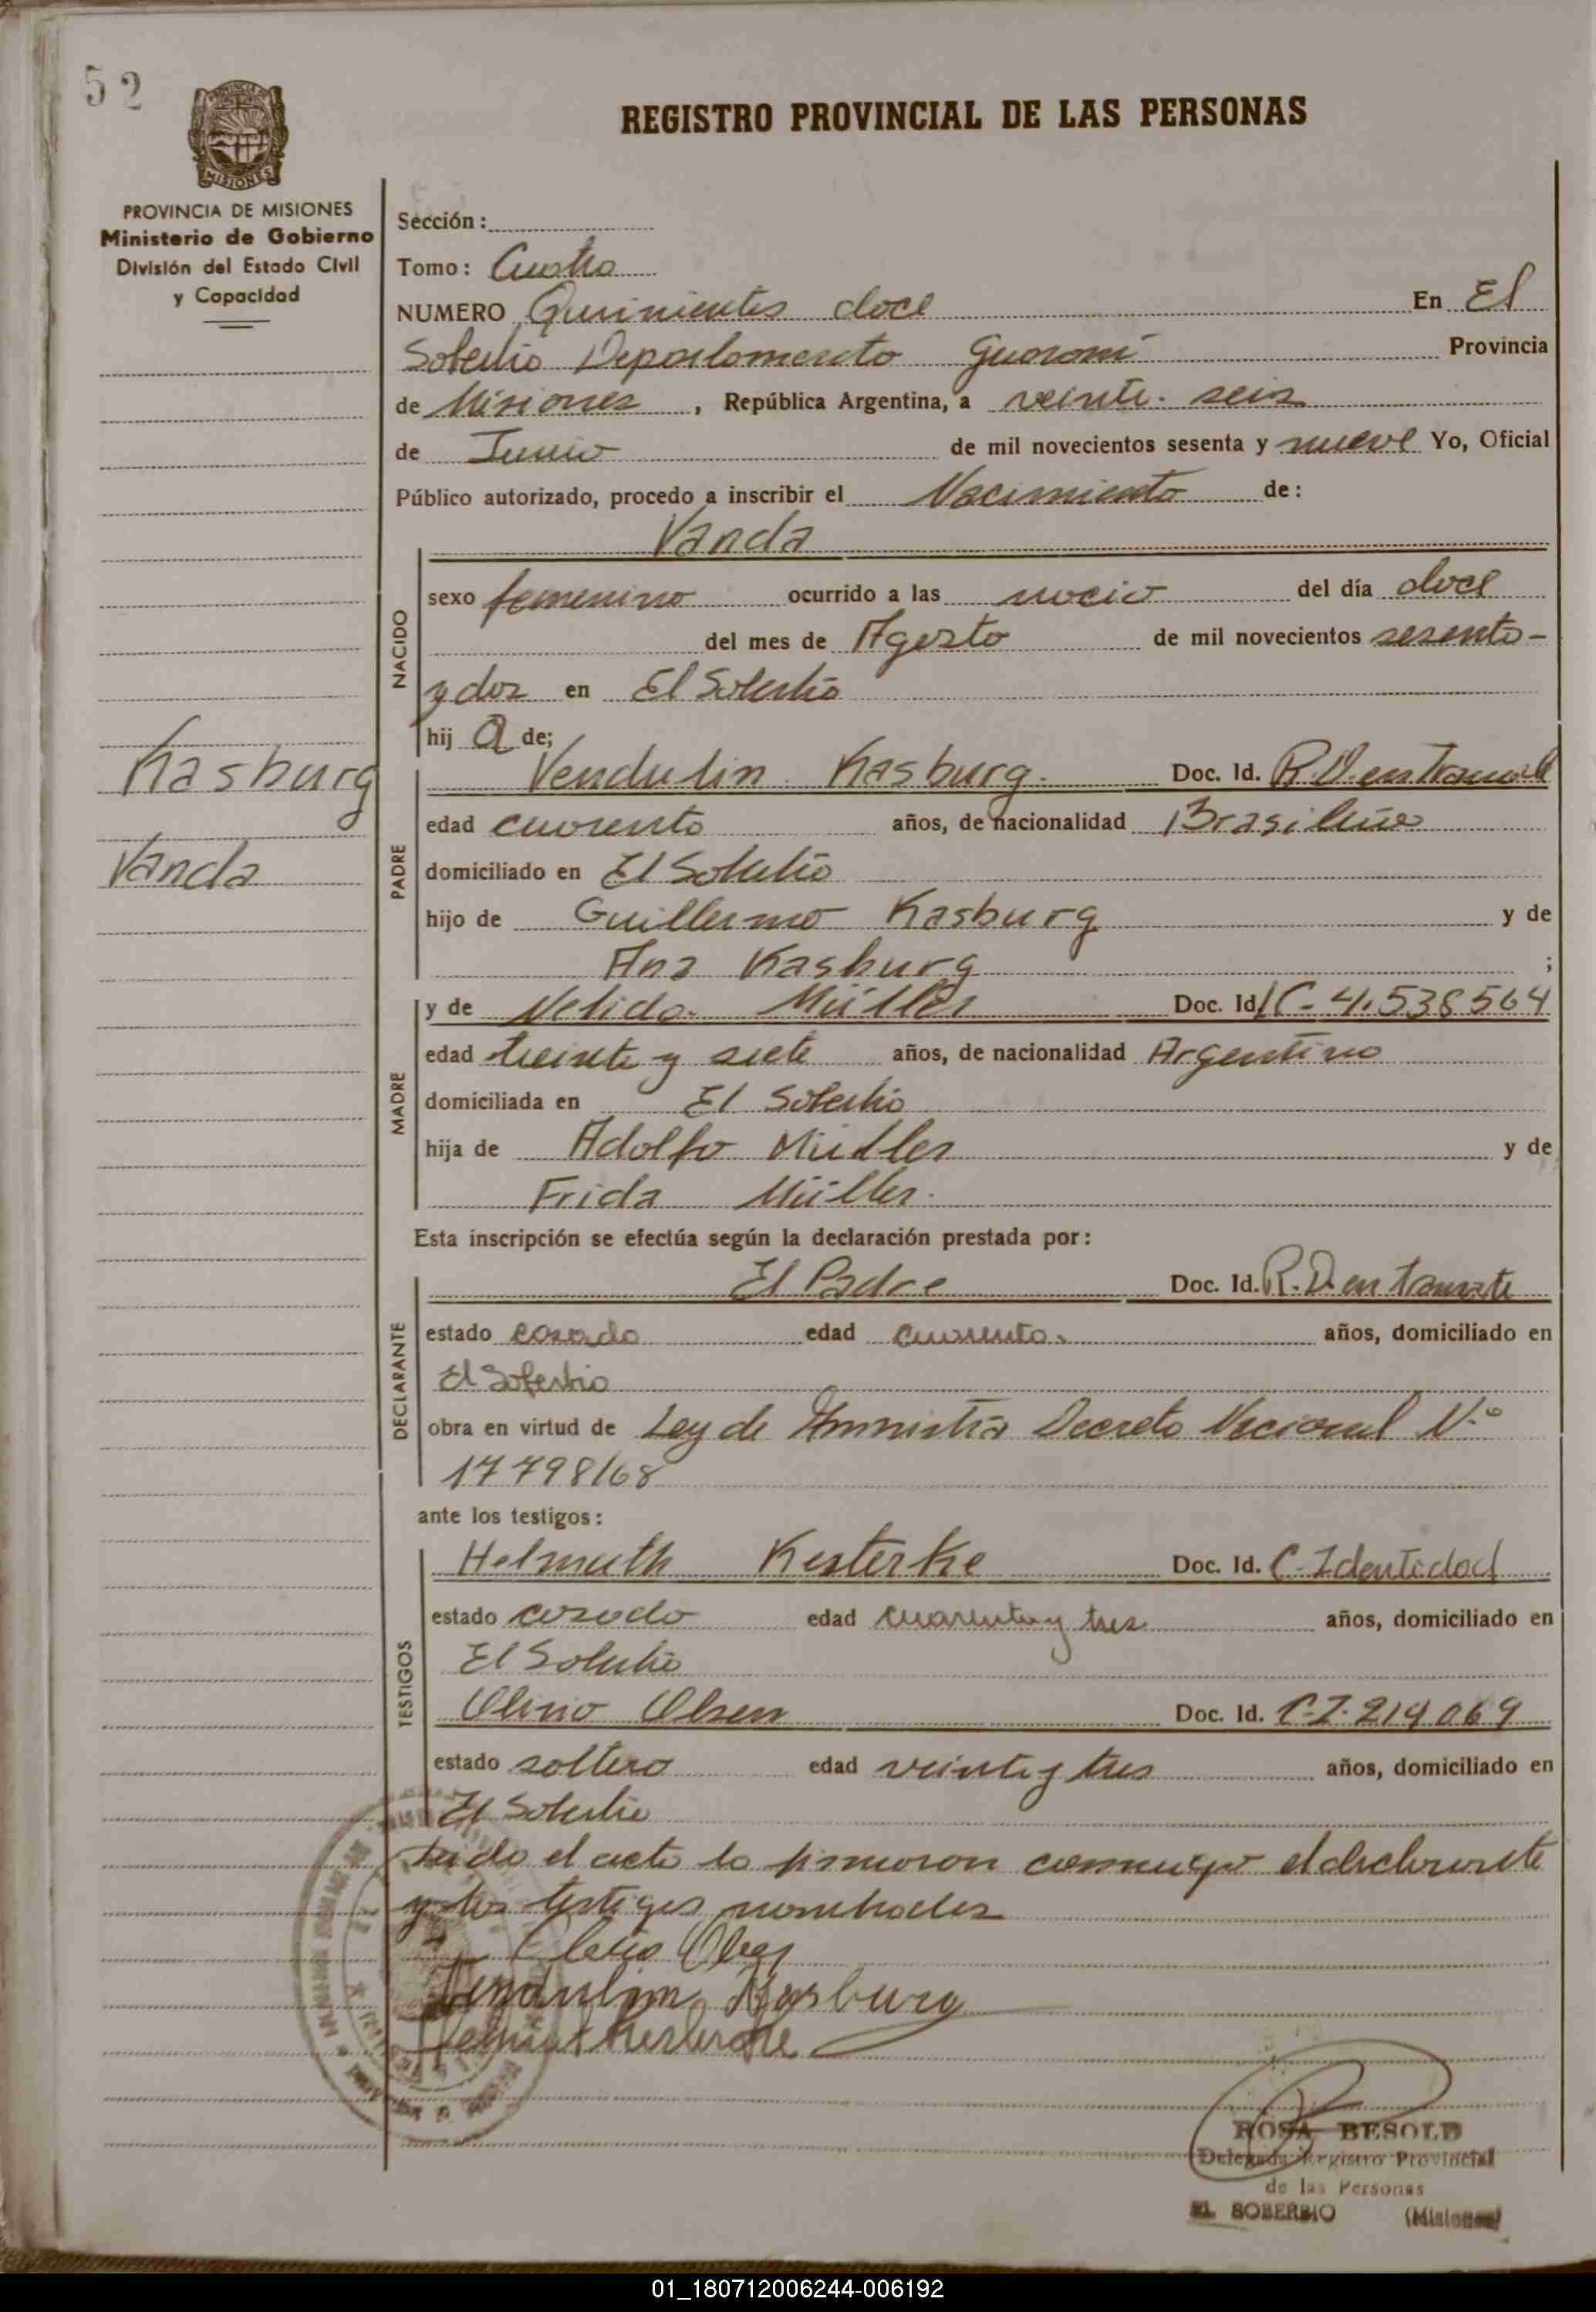 52
REGISTRO PROVINCIAL DE LAS PERSONAS
PROVINCIA DE MISIONES
Ministerio de Gobierno
División del Estado Civil
y Capacidad
Sección:
Tomo: Cuatro
NUMERO Quinientos doce En El
Soberbio Departamento Guaraní Provincia
de Misiones, República Argentina, a veinte. seis
de Junio de mil novecientos sesenta y nueve Yo, Oficial
Público autorizado, procedo a inscribir el Nacimiento de:
Vanda
NACIDO
sexo femenino ocurrido a las del día doce
del mes de Agosto de mil novecientos sesenta-
y dos en El Soberbio
hij a de;
Kasburg
Vanda
PADRE
Vendulin Kasburg. Doc. Id. R.D. en Tramite
edad cuarenta años, de nacionalidad Brasileña
domiciliado en El Soberbio
hijo de Guillermo Kasburg y de
Ana Kasburg ;
MADRE
y de Nelida Müller Doc. Id LC-4.538564
edad treinta y siete años, de nacionalidad Argentina
domiciliada en El Soberbio
hija de Adolfo Müller y de
Frida Müller.
Esta inscripción se efectúa según la declaración prestada por:
DECLARANTE
El Padre Doc. Id. R.D en tramite
estado casado edad cuarenta. años, domiciliado en
El Soberbio
obra en virtud de Ley de Amnistia Decreto Nacional N.º
17798/68
ante los testigos:
TESTIGOS
Helmuth Kesterke Doc. Id. C-Identidad
estado casado edad cuarenta y tres años, domiciliado en
El Soberbio
Olivio Olsen Doc. Id. C.I. 219069
estado soltero edad veinte y tres años, domiciliado en
El Soberbio
Leido el acto lo firmaron conmigo el declarante
y los testigos nombrados
Vendulim Kasburg
ROSA BESOLD
Delegada Registro Provincial
de las Personas
EL SOBERBIO (Misiones)
01_180712006244-006192